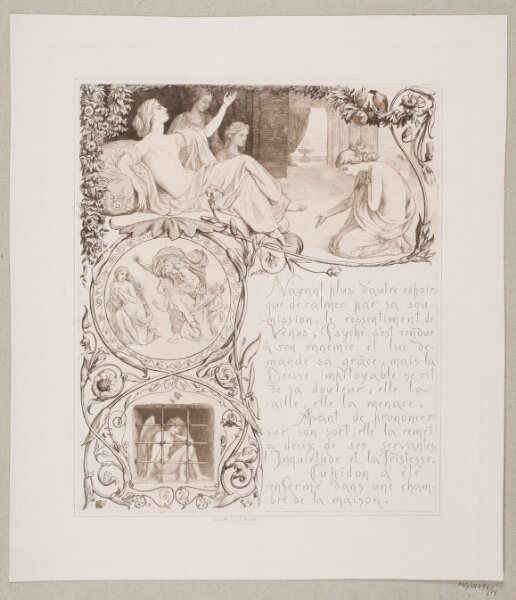 N'ayant plus d'autre espoir,
que de calmer par sa sou-
-mission, le ressentiment de
Vénus, Psyché s'est rendue
à son ennemie et lui de-
mande sa grâce, mais la
Déesse impitoyable se rit
de sa douleur, elle la
raille, elle la menace.
Avant de prononcer
sur son sort, elle la remet
a deux de ses servantes
l'Inquiétude et la Tristesse.
Cupidon a été
enfermé dans une cham-
bre de la maison.